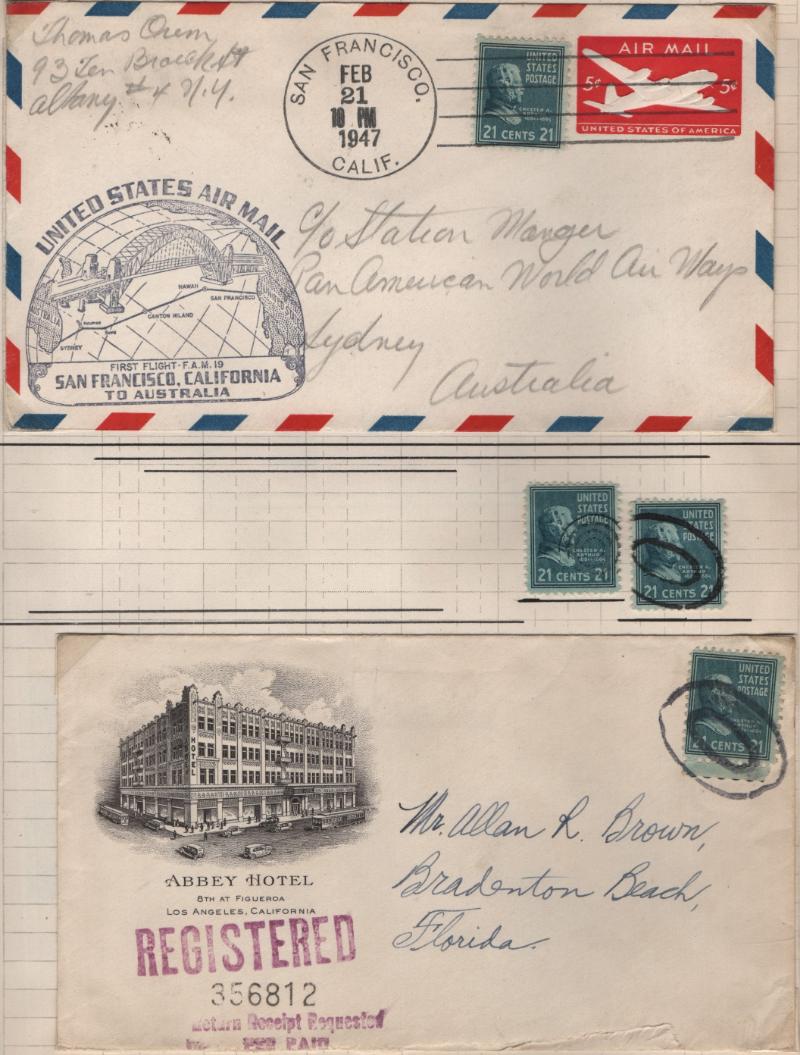 Thomas Orem
93 Ten Broeck St
Albany #4 N.Y.
SAN FRANCISCO.
FEB
21
10 PM
1947
CALIF.
UNITED
STATES
POSTAGE
CHESTER A.
ARTHUR
21 CENTS 21
AIR MAIL
5¢ 5¢
UNITED STATES OF AMERICA
UNITED STATES AIR MAIL
HAWAII
SAN FRANCISCO
CANTON ISLAND
AUSTRALIA
SYDNEY
FIRST FLIGHT - F.A.M. 19
SAN FRANCISCO, CALIFORNIA
TO AUSTRALIA
c/o Station Manger
Pan American World Air Ways
Sydney
Australia
UNITED
STATES
POSTAGE
CHESTER A.
ARTHUR
21 CENTS 21
UNITED
STATES
POSTAGE
CHESTER A.
ARTHUR
21 CENTS 21
UNITED
STATES
POSTAGE
CHESTER A.
ARTHUR
21 CENTS 21
HOTEL
ABBEY HOTEL
8TH AT FIGUEROA
LOS ANGELES, CALIFORNIA
REGISTERED
356812
Return Receipt Requested
FEE PAID
Mr. Allan R. Brown,
Bradenton Beach,
Florida.